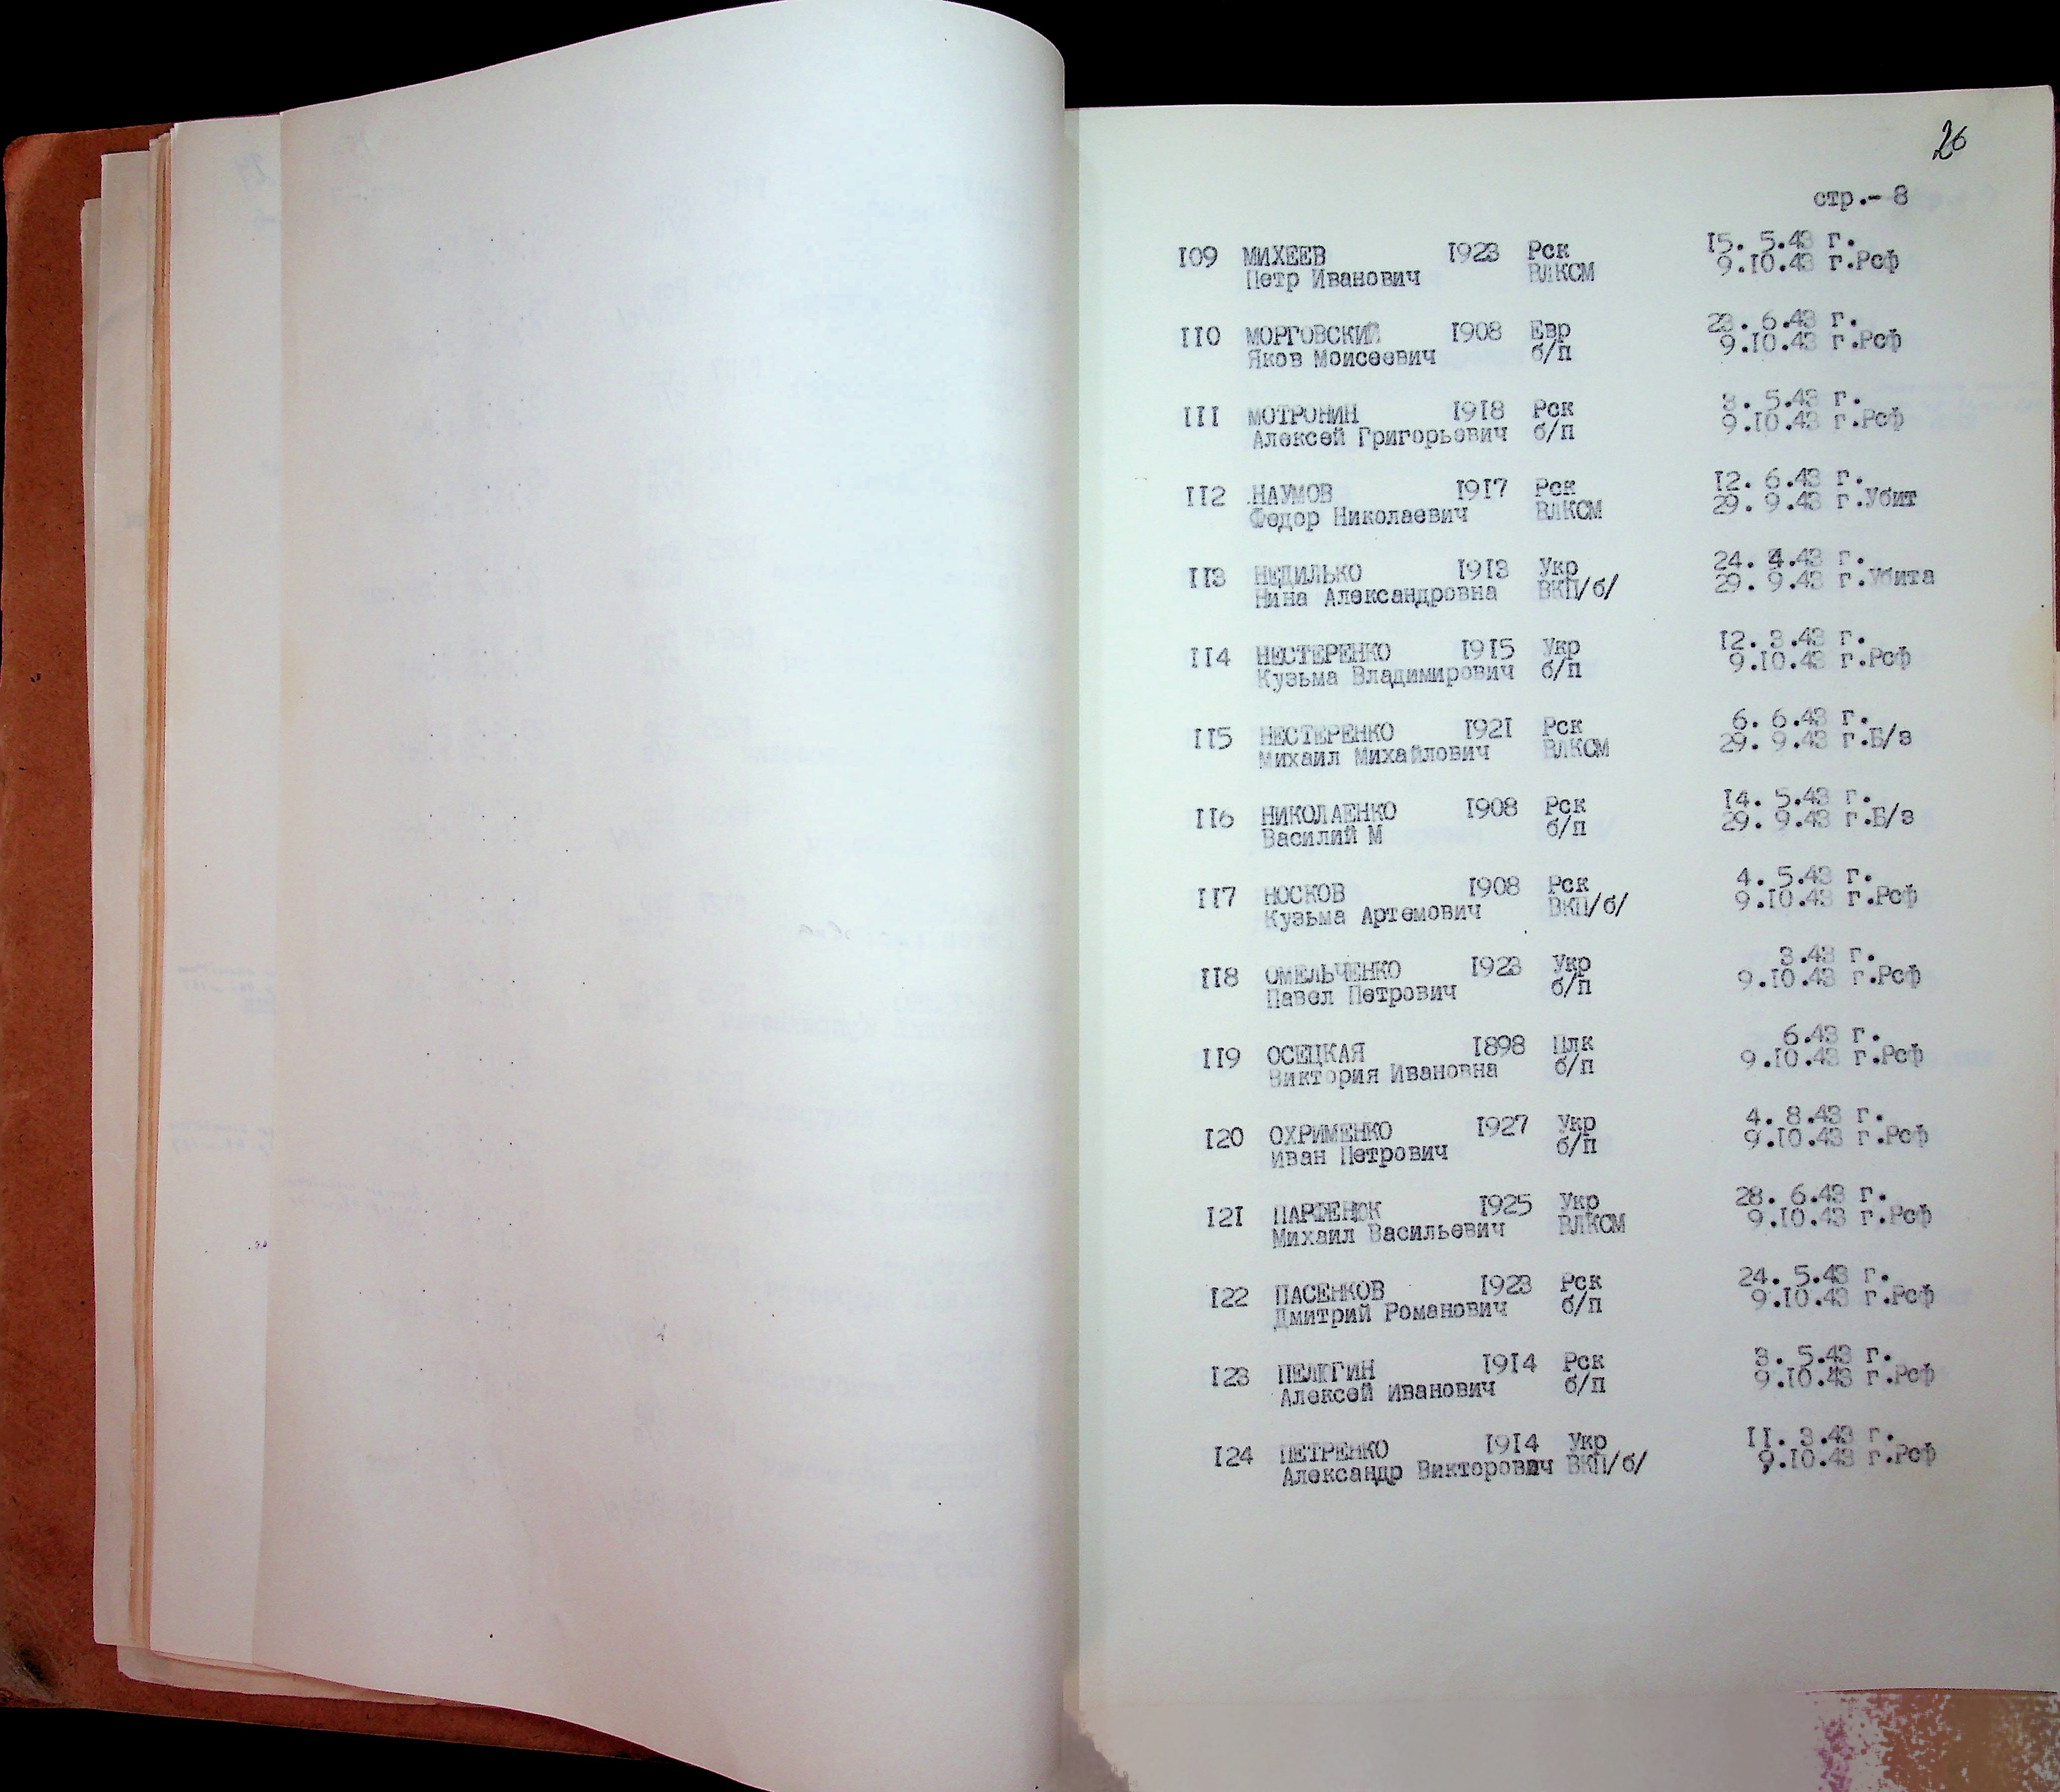 26
стр.- 8
109 МИХЕЕВ 1923 Рск 15. 5.43 г.
Петр Иванович ВЛКСМ 9.10.43 г.Рсф
110 МОРГОВСКИЙ 1908 Евр 23. 6.43 г.
Яков Моисеевич б/п 9.10.43 г.Рсф
111 МОТРОНИН 1918 Рск 3. 5.43 г.
Алексей Григорьевич б/п 9.10.43 г.Рсф
112 НАУМОВ 1917 Рск 12. 6.43 г.
Федор Николаевич ВЛКСМ 29. 9.43 г.Убит
113 НЕДИЛЬКО 1913 Укр 24. 4.43 г.
Нина Александровна ВКП/б/ 29. 9.43 г.Убита
114 НЕСТЕРЕНКО 1915 Укр 12. 3.43 г.
Кузьма Владимирович б/п 9.10.43 г.Рсф
115 НЕСТЕРЕНКО 1921 Рск 6. 6.43 г.
Михаил Михайлович ВЛКСМ 29. 9.43 г.Б/з
116 НИКОЛАЕНКО 1908 Рск 14. 5.43 г.
Василий М б/п 29. 9.43 г.Б/з
117 НОСКОВ 1908 Рск 4. 5.43 г.
Кузьма Артемович ВКП/б/ 9.10.43 г.Рсф
118 ОМЕЛЬЧЕНКО 1923 Укр 3.43 г.
Павел Петрович б/п 9.10.43 г.Рсф
119 ОСЕЦКАЯ 1898 Плк 6.43 г.
Виктория Ивановна б/п 9.10.43 г.Рсф
120 ОХРИМЕНКО 1927 Укр 4. 8.43 г.
Иван Петрович б/п 9.10.43 г.Рсф
121 ПАРФЕНЮК 1925 Укр 28. 6.43 г.
Михаил Васильевич ВЛКСМ 9.10.43 г.Рсф
122 ПАСЕНКОВ 1923 Рск 24. 5.43 г.
Дмитрий Романович б/п 9.10.43 г.Рсф
123 ПЕЛЮГИН 1914 Рск 3. 5.43 г.
Алексей Иванович б/п 9.10.43 г.Рсф
124 ПЕТРЕНКО 1914 Укр 11. 3.43 г.
Александр Викторович ВКП/б/ 9.10.43 г.Рсф